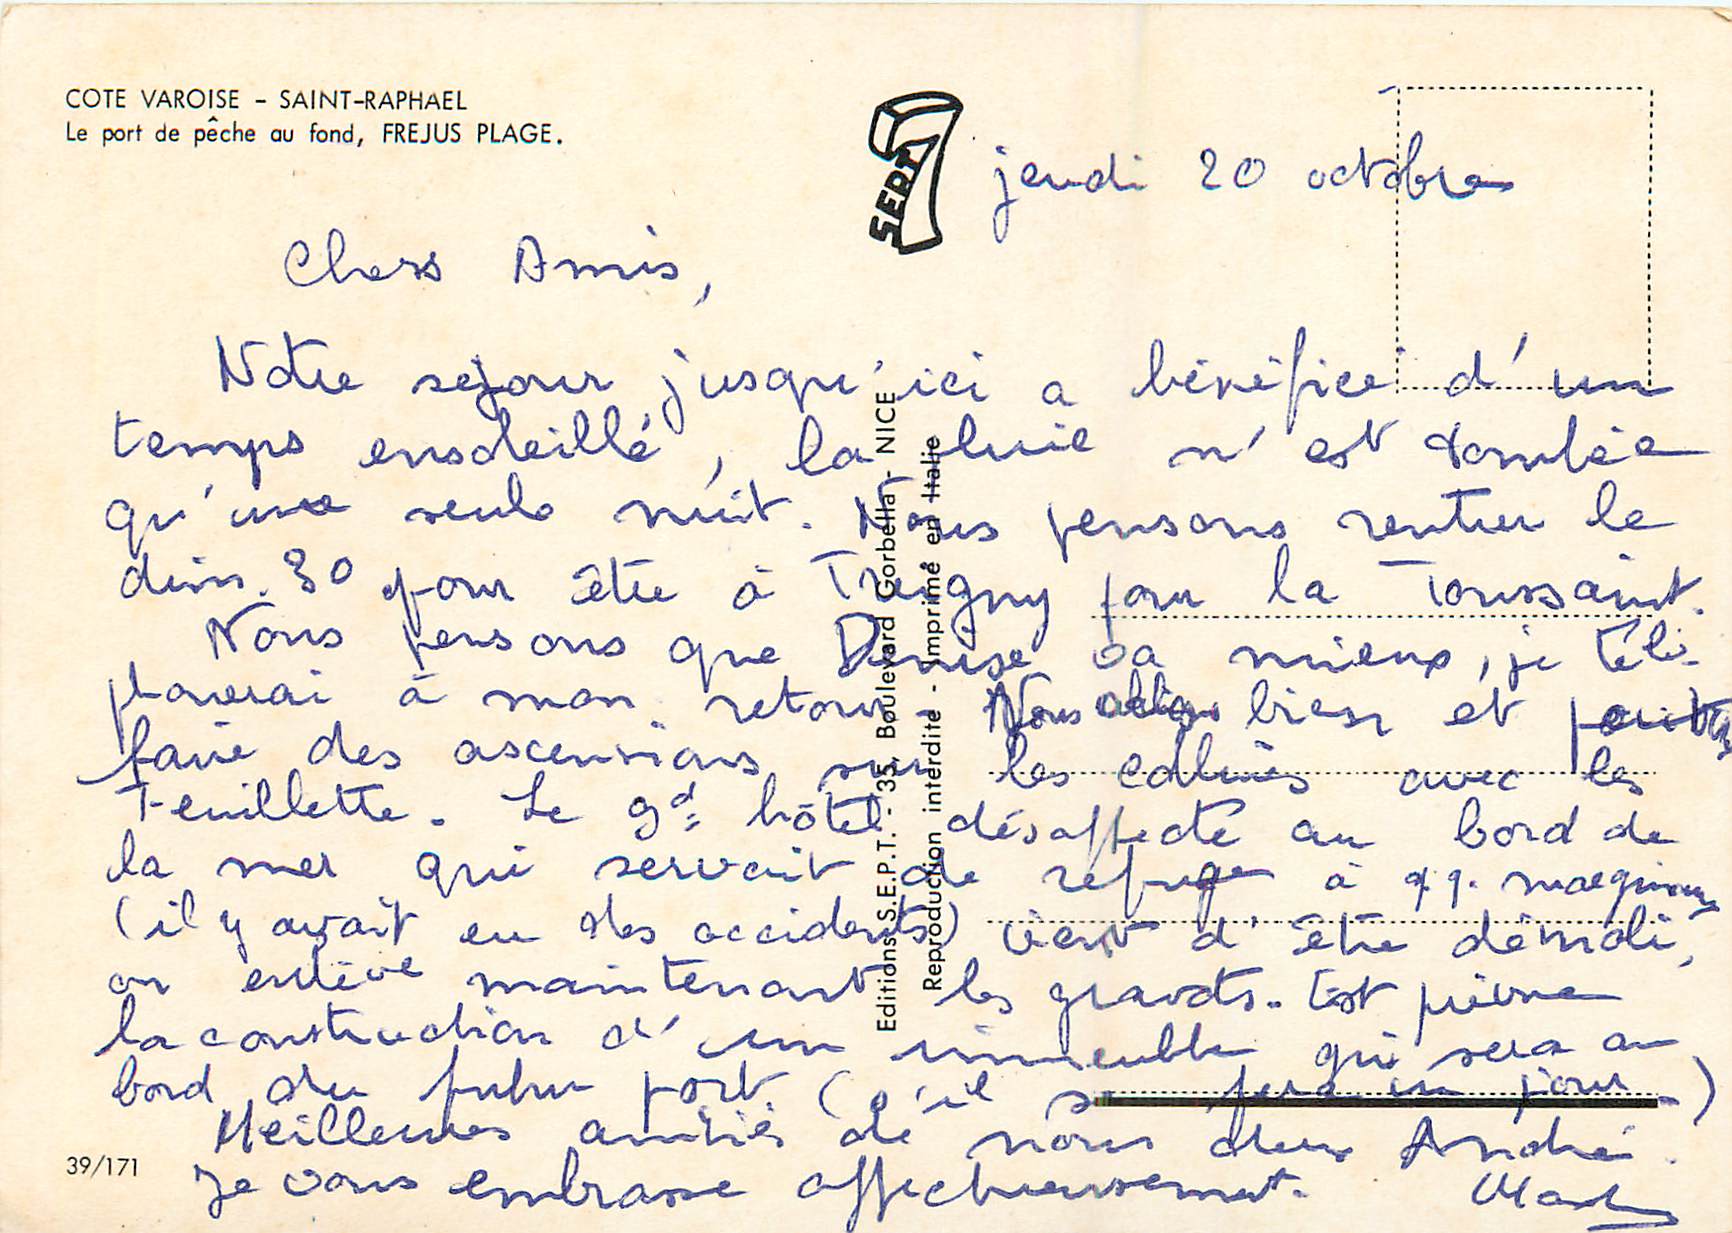 COTE VAROISE - SAINT-RAPHAEL
Le port de pêche au fond, FREJUS PLAGE.
SEPT
jeudi 20 octobre
Chers Amis,
Notre séjour jusqu'ici a bénéficié d'un
temps ensoleillé, la pluie n'est tombée
qu'une seule nuit. Nous pensons rentrer le
dim. 30 pour être à Treigny pour la Toussaint.
Nous pensons que Denise va mieux, je télé-
phonerai à mon retour. Nous allons bien et
faire des ascensions sur les collines avec les
Feuillette. Le gd hôtel désaffecté au bord de
la mer qui servait de refuge à qq. marginaux
(il y avait eu des accidents) vient d'être démoli,
on enlève maintenant les gravats. Est prévue
la construction d'un immeuble qui sera au
bord du futur port (s'il se fera un jour)
Meilleures amitiés de nous deux André.
Je vous embrasse affectueusement.
39/171
Editions S.E.P.T. - 35, Boulevard Gorbella - NICE
Reproduction interdite - Imprimé en Italie